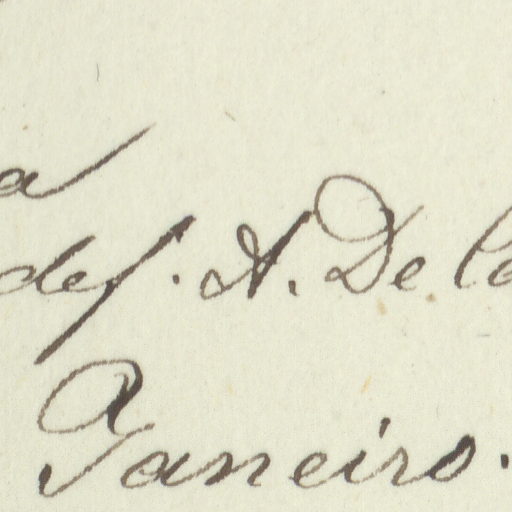 a
def. A. De Ca
Janeiro.